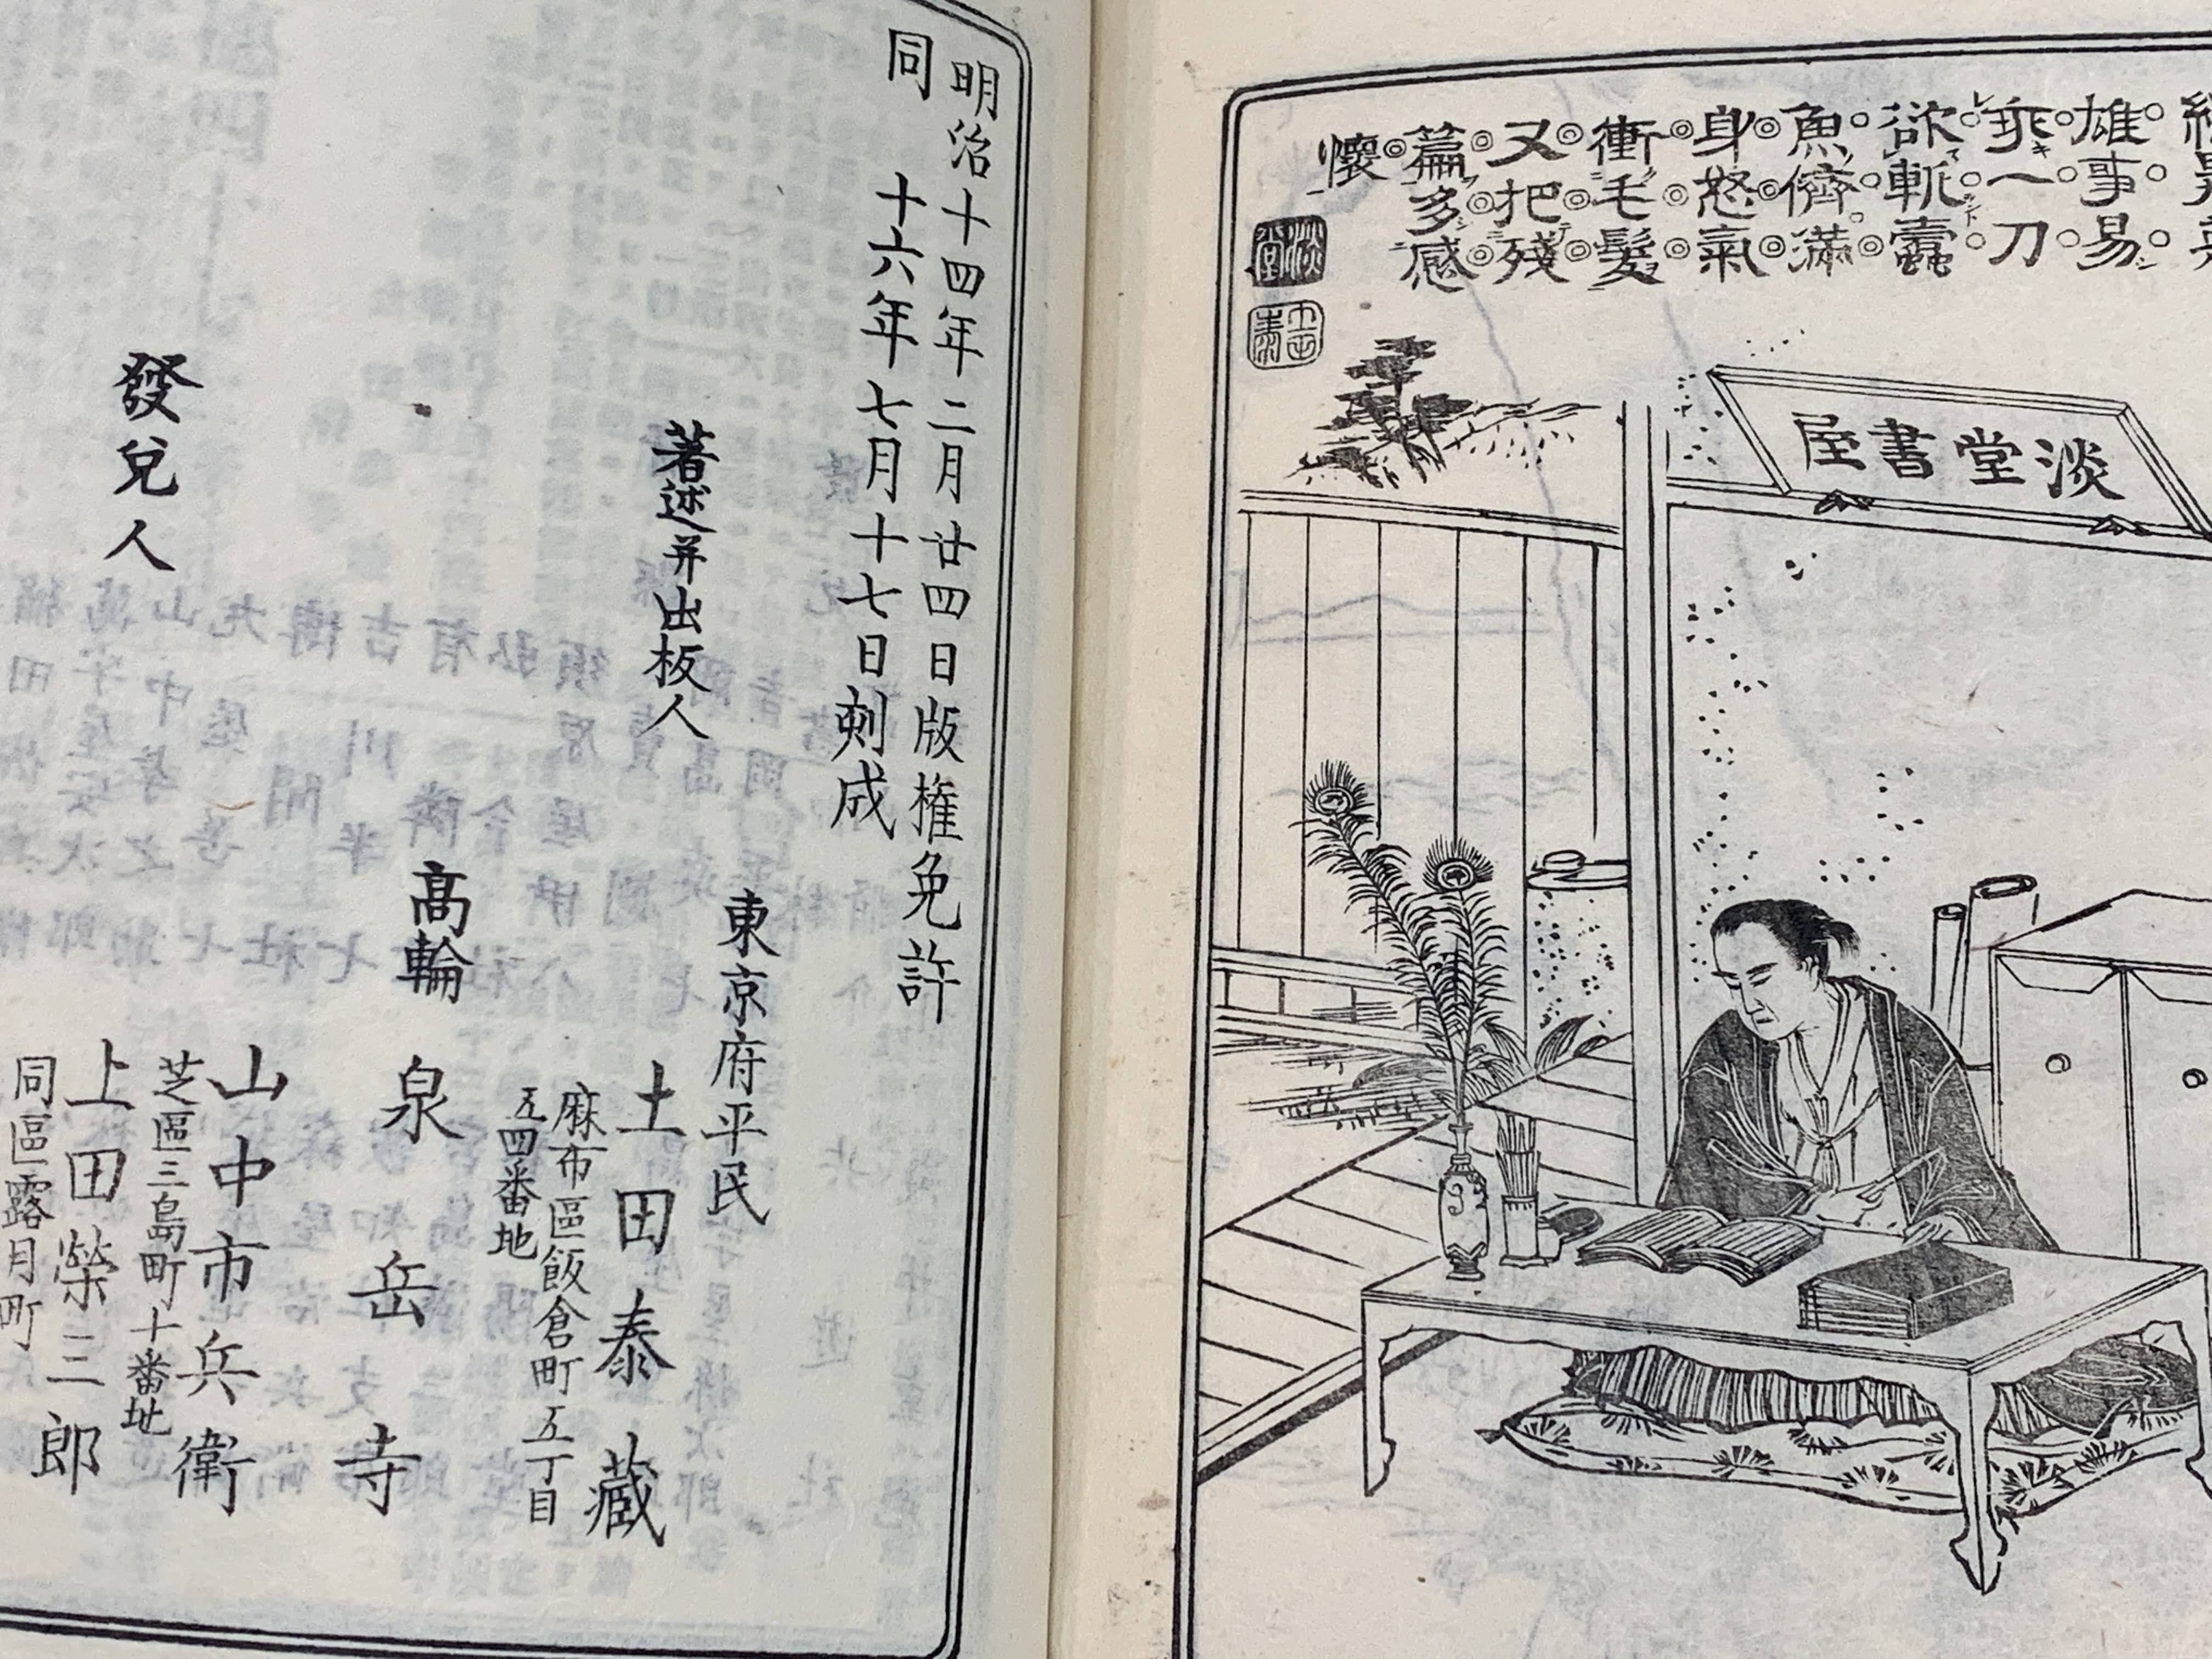 雄事易
乘一刀
欲斬蠹
魚儕滿
身怒氣
衝毛髮
又把殘
篇多感
懷
淡堂
淡堂書屋
明治十四年二月廿四日版權免許
同十六年七月十七日刻成
著述并出板人
東京府平民
土田泰藏
麻布區飯倉町五丁目
五四番地
發兌人
高輪
泉岳寺
山中市兵衛
芝區三島町十番地
上田榮三郎
同區露月町